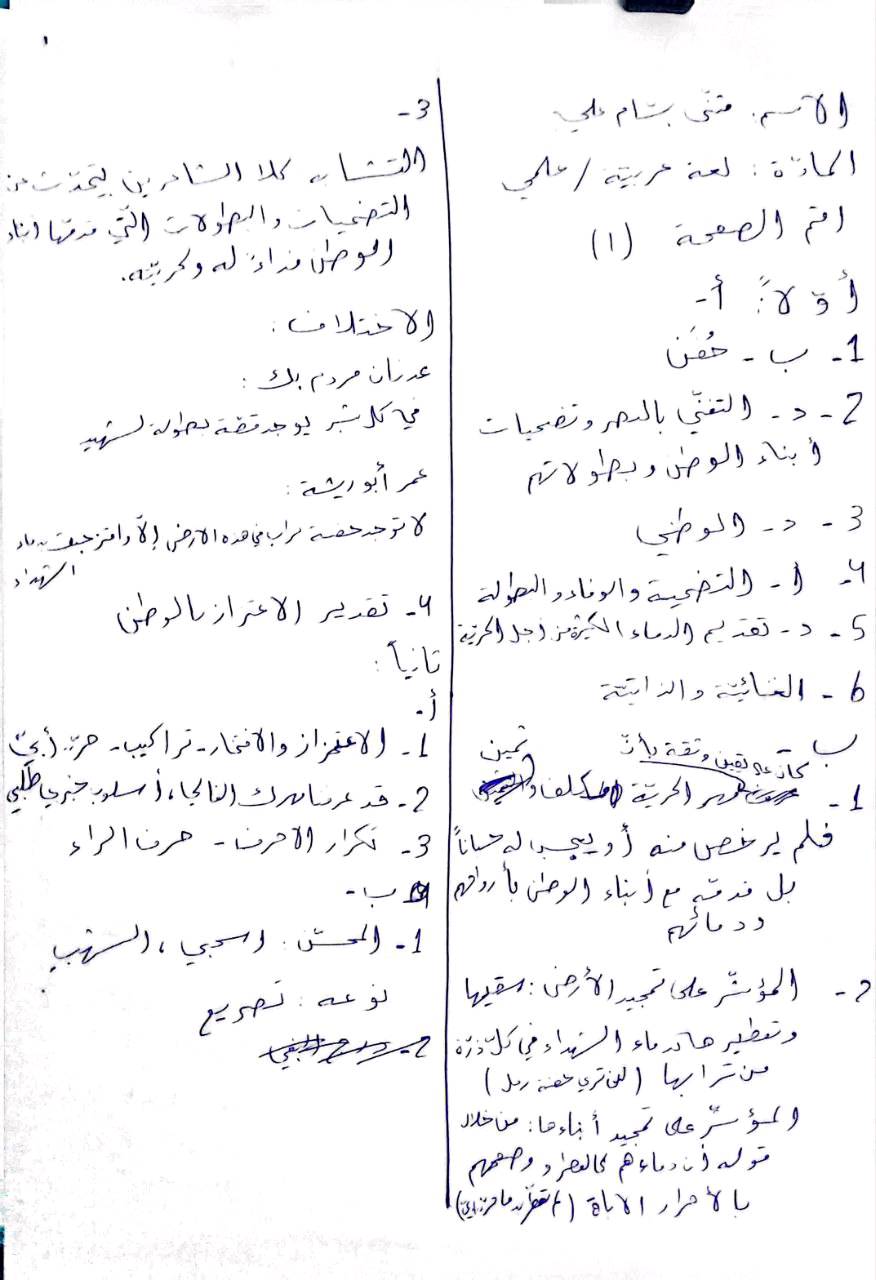 ١
الاسم: مثنّى بسّام علي
المادّة: لغة عربية / علمي
رقم الصفحة (١)
أوّلاً: أ-
1- ب - حُفَن
2- د- التغنّي بالنصر وتضحيات
أبناء الوطن وبطولاتهم
3- د- الوطني
4- أ- التضحية والوفاء والبطولة
5- د- تقديم الدماء الكثيرة من أجل الحريّة
6- الغنائيّة والذاتيّة
ب
كان على يقين وثقة بأنّ ثمين
1- مهر الحريّة
فلم يرخص منه أو يحسب له حساباً
بل قدمّه مع أبناء الوطن بأرواحهم
ودمائهم
2- المؤشّر على تمجيد الأرض: سقيها
وتعطيرها بدماء الشهداء في كلّ ذرّة
من ترابها (لن تري حفنة رمل)
المؤشّر على تمجيد أبناءها: من خلال
قوله أن دماءهم كالعطر ووصفهم
بالأحرار الأباة (لم تعطّر بدما حرّ أبيّ)
3-
التشابه كلا الشاعرين يتحدّث عن
التضحيات والبطولات الّتي قدمّها أبناء
الوطن فداءً له ولحريّته.
الاختلاف:
عدنان مردم بك:
في كل شبر يوجد قصّة بطولة لشهيد
عمر أبو ريشة:
لا توجد حفنة تراب في هذه الأرض إلّا وامتزجت بدماء
الشهداء
4- تقدير الاعتزاز بالوطن
ثانياً:
أ-
1- الاعتزاز والافتخار - تراكيب - حرّ أبيّ
2- قد عرفنا مهرك الغالي، أسلوب خبري طلبي
3- تكرار الأحرف - حرف الراء
ب-
1- المحسّن: اسحبي، الشهب
نوعه: تصريع